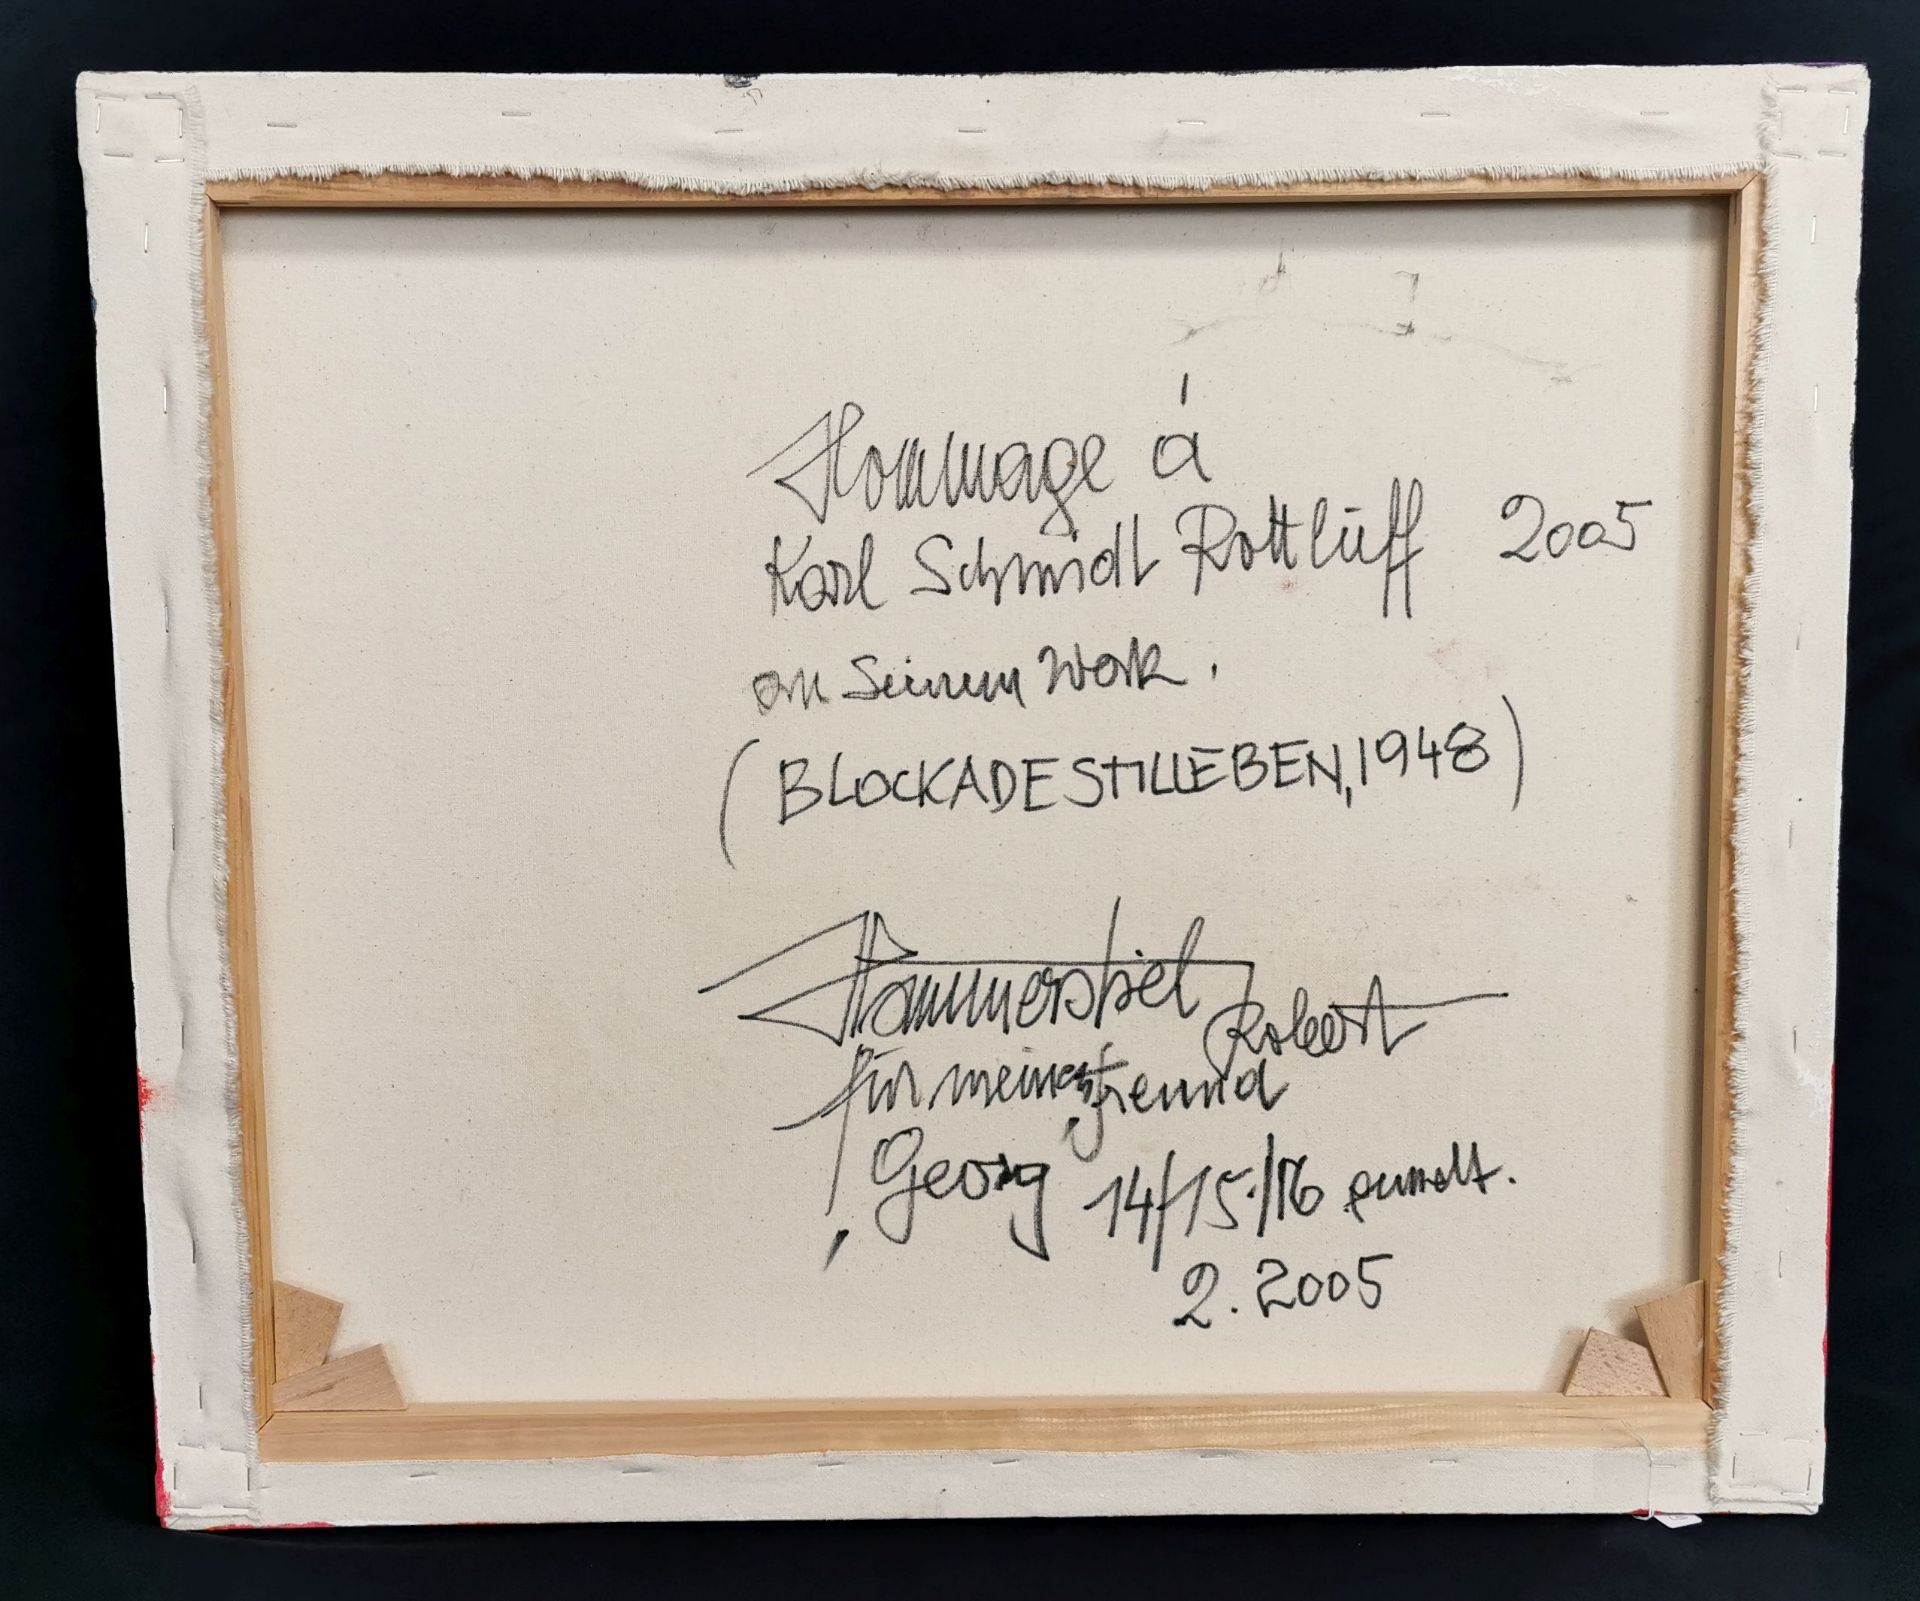 Hommage á
Karl Schmidt Rottlüff 2005
an Seinem Werk.
(BLOCKADESTILLEBEN, 1948)
Hammerstiel
Robert
für meinen Freund
Georg 14/15./16 gemalt.
2. 2005